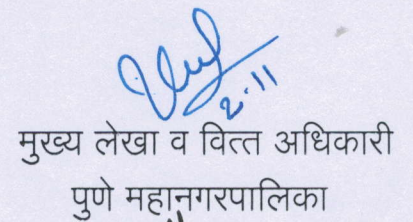 2.11
मुख्य लेखा व वित्त अधिकारी
पुणे महानगरपालिका